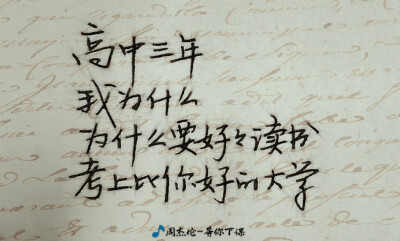 高中三年
我为什么
为什么要好々读书
考上比你好的大学
周杰伦-等你下课